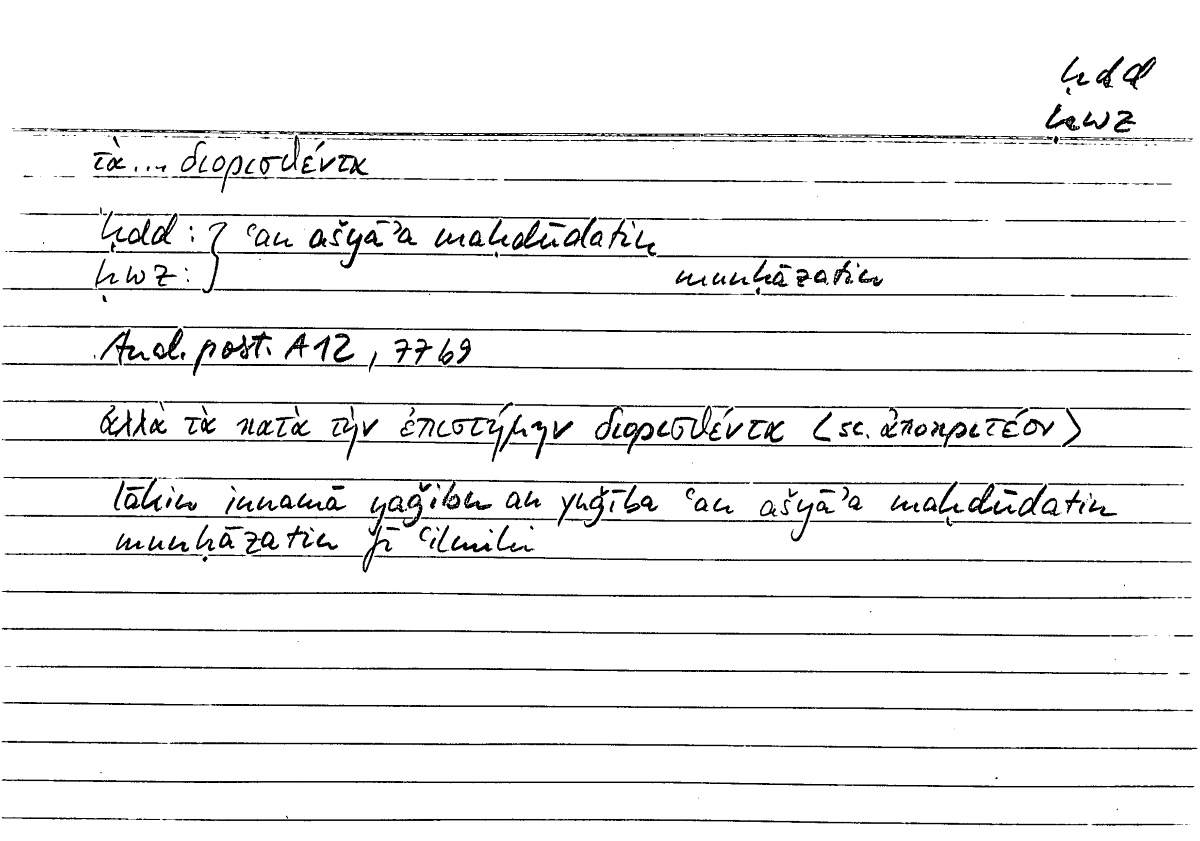 ḥdd
ḥwz
τὰ... διορισθέντα
ḥdd : } ʿan ašyāʾa maḥdūdatin
ḥwz : } munḥāzatin
Anal. post. A 12, 77b9
ἀλλὰ τὰ κατὰ τὴν ἐπιστήμην διορισθέντα ⟨sc. ἀποκριτέον⟩
lākin innamā yaǧibu an yuǧība ʿan ašyāʾa maḥdūdatin
munḥāzatin fī ʿilmihi